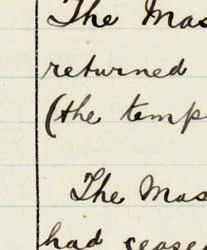 The Mas
returned
(the temp
The Mas
had ceased